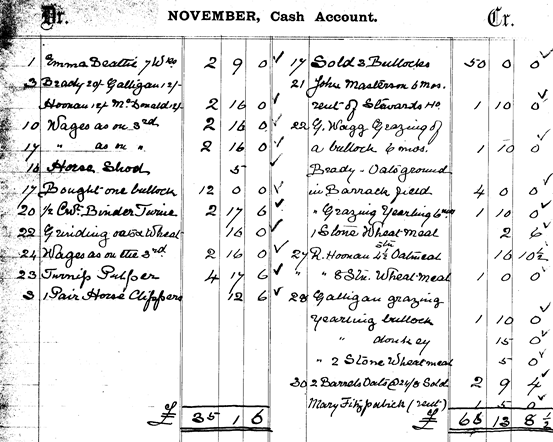 Dr. NOVEMBER, Cash Account. Cr.
1 Emma Beattie 7 Wks 2 9 0
3 Brady 20/- Galligan 12/-
Hoonan 12/- McDonald 12/- 2 16 0
10 Wages as on 3rd 2 16 0
17 " as on " 2 16 0
16 Horse Shod 5
17 Bought one bullock 12 0 0
20 1/2 Cwt. Binder Twine 2 17 6
22 Grinding oats & Wheat 16 0
24 Wages as on the 3rd 2 16 0
23 Turnip Pulper 4 17 6
3 1 Pair Horse Clippers 12 6
£ 35 1 6
17 Sold 3 Bullocks 50 0 0
21 John Masterson 6 mos.
rent of Stewards Ho. 1 10 0
22 G. Wagg Grazing of
a bullock 6 mos. 1 10 0
Brady - Oats ground
in Barrack field 4 0 0
" Grazing Yearling 6 mos 1 10 0
1 Stone Wheat meal 2 6
27 R. Hoonan 4½ Stn Oatmeal 16 10½
" " 8 Stn. Wheat-meal 1 0 0
28 Galligan grazing
Yearling bullock 1 10 0
" donkey 15 0
" 2 Stone Wheatmeal 5 0
30 2 Barrels Oats @ 24/8 Sold 2 9 4
Mary Fitzpatrick (rent) 1 5 0
£ 66 13 8 ½